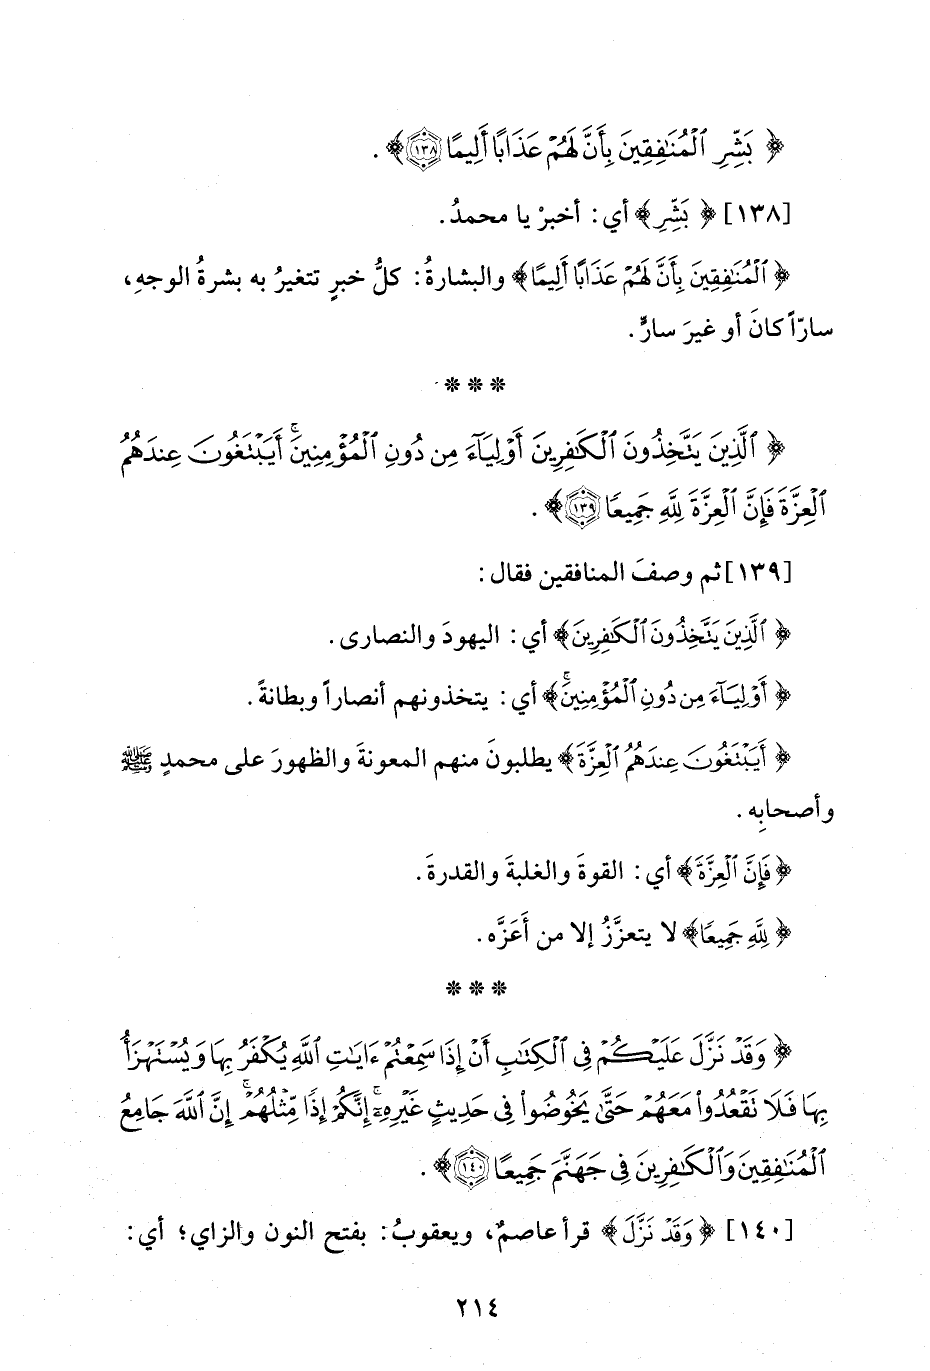 ﴿ بَشِّرِ ٱلْمُنَٰفِقِينَ بِأَنَّ لَهُمْ عَذَابًا أَلِيمًا ١٣٨ ﴾ .
[١٣٨] ﴿ بَشِّرِ ﴾ أي: أخبرْ يا محمدُ.
﴿ ٱلْمُنَٰفِقِينَ بِأَنَّ لَهُمْ عَذَابًا أَلِيمًا ﴾ والبشارةُ: كلُّ خبرٍ تتغيرُ به بشرةُ الوجهِ،
سارّاً كانَ أو غيرَ سارٍّ.
* * *
﴿ ٱلَّذِينَ يَتَّخِذُونَ ٱلْكَٰفِرِينَ أَوْلِيَآءَ مِن دُونِ ٱلْمُؤْمِنِينَ ۚ أَيَبْتَغُونَ عِندَهُمُ
ٱلْعِزَّةَ فَإِنَّ ٱلْعِزَّةَ لِلَّهِ جَمِيعًا ١٣٩ ﴾ .
[١٣٩] ثم وصفَ المنافقين فقال:
﴿ ٱلَّذِينَ يَتَّخِذُونَ ٱلْكَٰفِرِينَ ﴾ أي: اليهودَ والنصارى.
﴿ أَوْلِيَآءَ مِن دُونِ ٱلْمُؤْمِنِينَ ۚ ﴾ أي: يتخذونهم أنصاراً وبطانةً.
﴿ أَيَبْتَغُونَ عِندَهُمُ ٱلْعِزَّةَ ﴾ يطلبونَ منهم المعونةَ والظهورَ على محمدٍ ﷺ
وأصحابِه.
﴿ فَإِنَّ ٱلْعِزَّةَ ﴾ أي: القوةَ والغلبةَ والقدرةَ.
﴿ لِلَّهِ جَمِيعًا ﴾ لا يتعزَّزُ إلا من أَعَزَّه.
* * *
﴿ وَقَدْ نَزَّلَ عَلَيْكُمْ فِى ٱلْكِتَٰبِ أَنْ إِذَا سَمِعْتُمْ ءَايَٰتِ ٱللَّهِ يُكْفَرُ بِهَا وَيُسْتَهْزَأُ
بِهَا فَلَا تَقْعُدُوا۟ مَعَهُمْ حَتَّىٰ يَخُوضُوا۟ فِى حَدِيثٍ غَيْرِهِۦٓ ۚ إِنَّكُمْ إِذًا مِّثْلُهُمْ ۗ إِنَّ ٱللَّهَ جَامِعُ
ٱلْمُنَٰفِقِينَ وَٱلْكَٰفِرِينَ فِى جَهَنَّمَ جَمِيعًا ١٤٠ ﴾ .
[١٤٠] ﴿ وَقَدْ نَزَّلَ ﴾ قرأ عاصمٌ، ويعقوبُ: بفتح النون والزاي؛ أي:
٢١٤